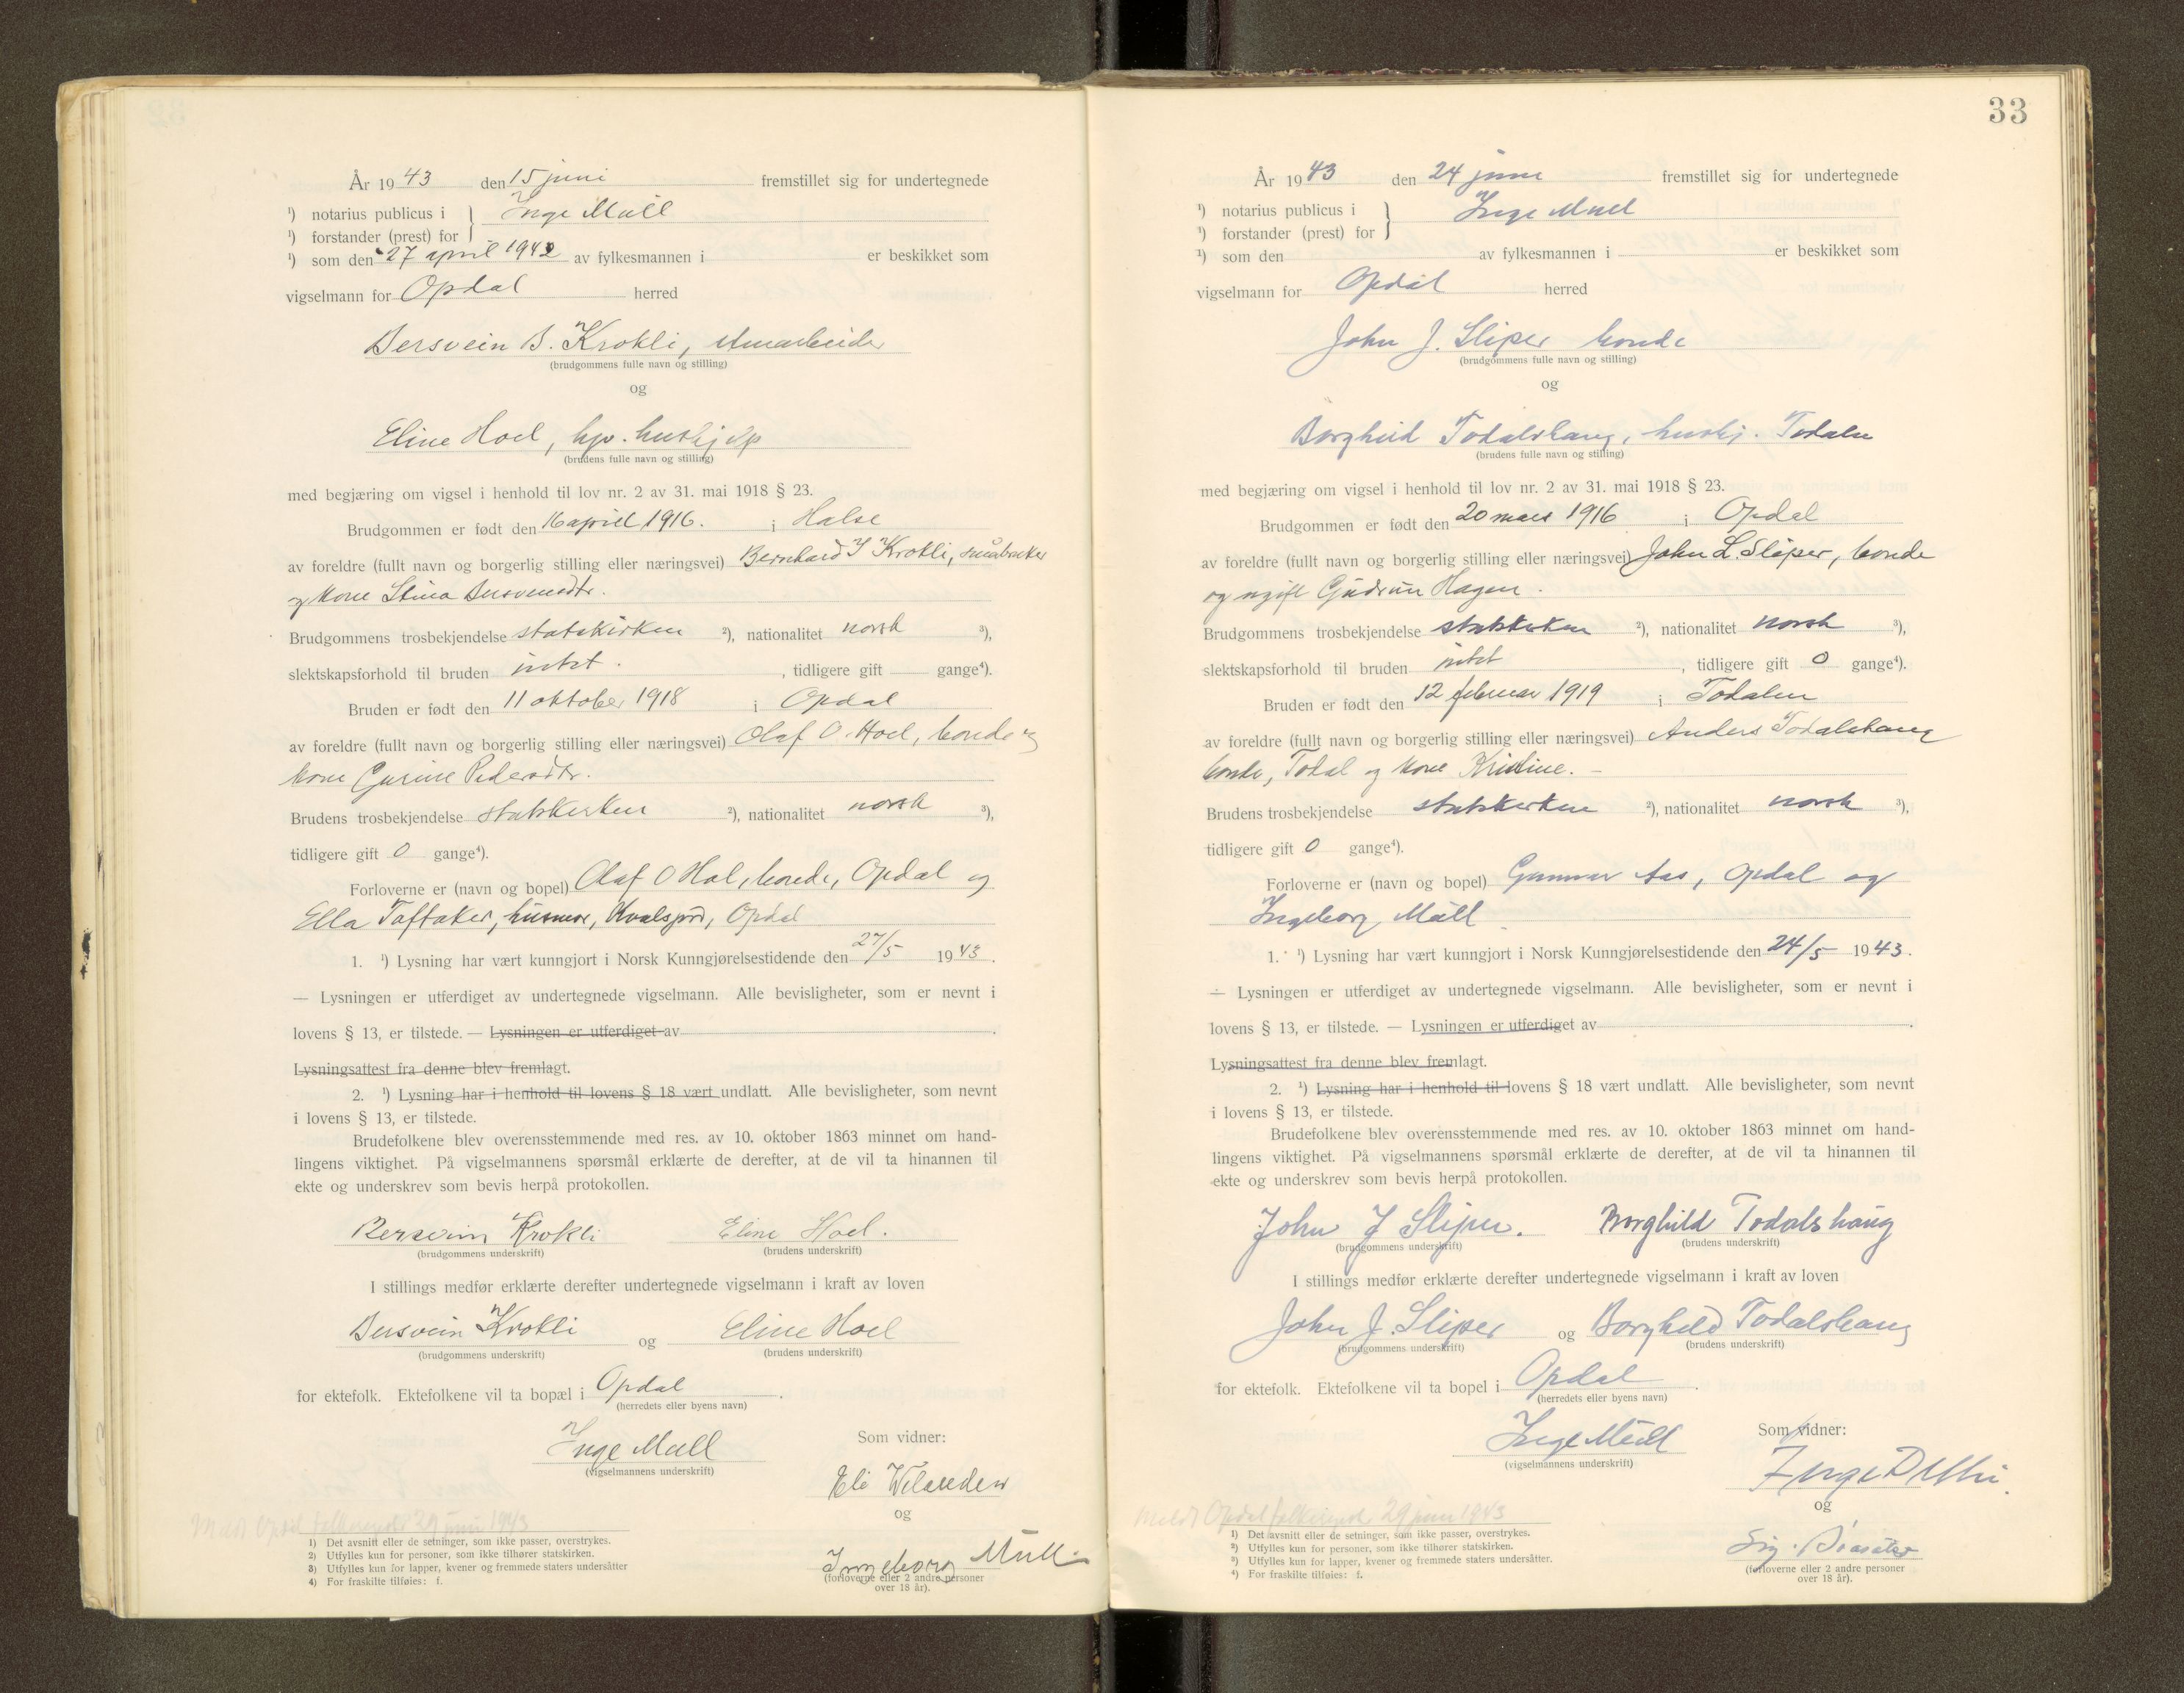 År 1943 den 15 juni fremstillet sig for undertegnede
¹) notarius publicus i } Inge Mull
¹) forstander (prest) for
¹) som den 27 april 1942 av fylkesmannen i er beskikket som
vigselmann for Opdal herred
Bersvein B. Krokli,
(brudgommens fulle navn og stilling)
og
Eline Hoel, hjv. hushjelp
(brudens fulle navn og stilling)
med begjæring om vigsel i henhold til lov nr. 2 av 31. mai 1918 § 23.
Brudgommen er født den 16 april 1916. i Halse
av foreldre (fullt navn og borgerlig stilling eller næringsvei) Bernhard I Krokli, småbruker
og kone Stina
Brudgommens trosbekjendelse statskirken ²), nationalitet norsk ³),
slektskapsforhold til bruden intet. , tidligere gift gange⁴).
Bruden er født den 11 oktober 1918 i Opdal
av foreldre (fullt navn og borgerlig stilling eller næringsvei) Olaf O. Hoel, bonde og
kone Gurine Pedersdtr.
Brudens trosbekjendelse statskirken ²), nationalitet norsk ³),
tidligere gift 0 gange⁴).
Forloverne er (navn og bopel) Olaf O Hol, bonde, Opdal og
Ella Taftaker, husmor, Opdal
1. ¹) Lysning har vært kunngjort i Norsk Kunngjørelsestidende den 27/5 1943.
— Lysningen er utferdiget av undertegnede vigselmann. Alle bevisligheter, som er nevnt i
lovens § 13, er tilstede. — Lysningen er utferdiget av .
Lysningsattest fra denne blev fremlagt.
2. ¹) Lysning har i henhold til lovens § 18 vært undlatt. Alle bevisligheter, som nevnt
i lovens § 13, er tilstede.
Brudefolkene blev overensstemmende med res. av 10. oktober 1863 minnet om hand-
lingens viktighet. På vigselmannens spørsmål erklærte de derefter, at de vil ta hinannen til
ekte og underskrev som bevis herpå protokollen.
Bersvein Krokli Eline Hoel.
(brudgommens underskrift) (brudens underskrift)
I stillings medfør erklærte derefter undertegnede vigselmann i kraft av loven
Bersvein Krokli og Eline Hoel
(brudgommens underskrift) (brudens underskrift)
for ektefolk. Ektefolkene vil ta bopæl i Opdal .
(herredets eller byens navn)
Inge Mull
(vigselmannens underskrift)
Som vidner:
og
Ingeborg Mull
(forloverne eller 2 andre personer
over 18 år).
Meldt Opdal folkeregister 29 juni 1943
1) Det avsnitt eller de setninger, som ikke passer, overstrykes.
2) Utfylles kun for personer, som ikke tilhører statskirken.
3) Utfylles kun for lapper, kvener og fremmede staters undersåtter
4) For fraskilte tilføies: f.
33
År 1943 den 24 juni fremstillet sig for undertegnede
¹) notarius publicus i } Inge Mull
¹) forstander (prest) for
¹) som den av fylkesmannen i er beskikket som
vigselmann for Opdal herred
John J. Sliper bonde
(brudgommens fulle navn og stilling)
og
Borghild Todalshaug, hushj. Todalen
(brudens fulle navn og stilling)
med begjæring om vigsel i henhold til lov nr. 2 av 31. mai 1918 § 23.
Brudgommen er født den 20 mars 1916 i Opdal
av foreldre (fullt navn og borgerlig stilling eller næringsvei) John L. Sliper, bonde
og ugift Gudrun Hagen.
Brudgommens trosbekjendelse statskirken ²), nationalitet norsk ³),
slektskapsforhold til bruden intet , tidligere gift 0 gange⁴).
Bruden er født den 12 februar 1919 i Todalen
av foreldre (fullt navn og borgerlig stilling eller næringsvei) Anders Todalshaug
bonde, Todal og kone Kristine. –
Brudens trosbekjendelse statskirken ²), nationalitet norsk ³),
tidligere gift 0 gange⁴).
Forloverne er (navn og bopel) Gunnar Aas, Opdal og
Ingeborg Mull
1. ¹) Lysning har vært kunngjort i Norsk Kunngjørelsestidende den 24/5 1943.
— Lysningen er utferdiget av undertegnede vigselmann. Alle bevisligheter, som er nevnt i
lovens § 13, er tilstede. — Lysningen er utferdiget av .
Lysningsattest fra denne blev fremlagt.
2. ¹) Lysning har i henhold til lovens § 18 vært undlatt. Alle bevisligheter, som nevnt
i lovens § 13, er tilstede.
Brudefolkene blev overensstemmende med res. av 10. oktober 1863 minnet om hand-
lingens viktighet. På vigselmannens spørsmål erklærte de derefter, at de vil ta hinannen til
ekte og underskrev som bevis herpå protokollen.
John J Sliper. Borghild Todalshaug
(brudgommens underskrift) (brudens underskrift)
I stillings medfør erklærte derefter undertegnede vigselmann i kraft av loven
John J. Sliper og Borghild Todalshaug
(brudgommens underskrift) (brudens underskrift)
for ektefolk. Ektefolkene vil ta bopel i Opdal .
(herredets eller byens navn)
Inge Mull
(vigselmannens underskrift)
Som vidner:
og
(forloverne eller 2 andre personer
over 18 år).
Meldt Opdal folkeregister 29 juni 1943
1) Det avsnitt eller de setninger, som ikke passer, overstrykes.
2) Utfylles kun for personer, som ikke tilhører statskirken.
3) Utfylles kun for lapper, kvener og fremmede staters undersåtter.
4) For fraskilte tilføies: f.